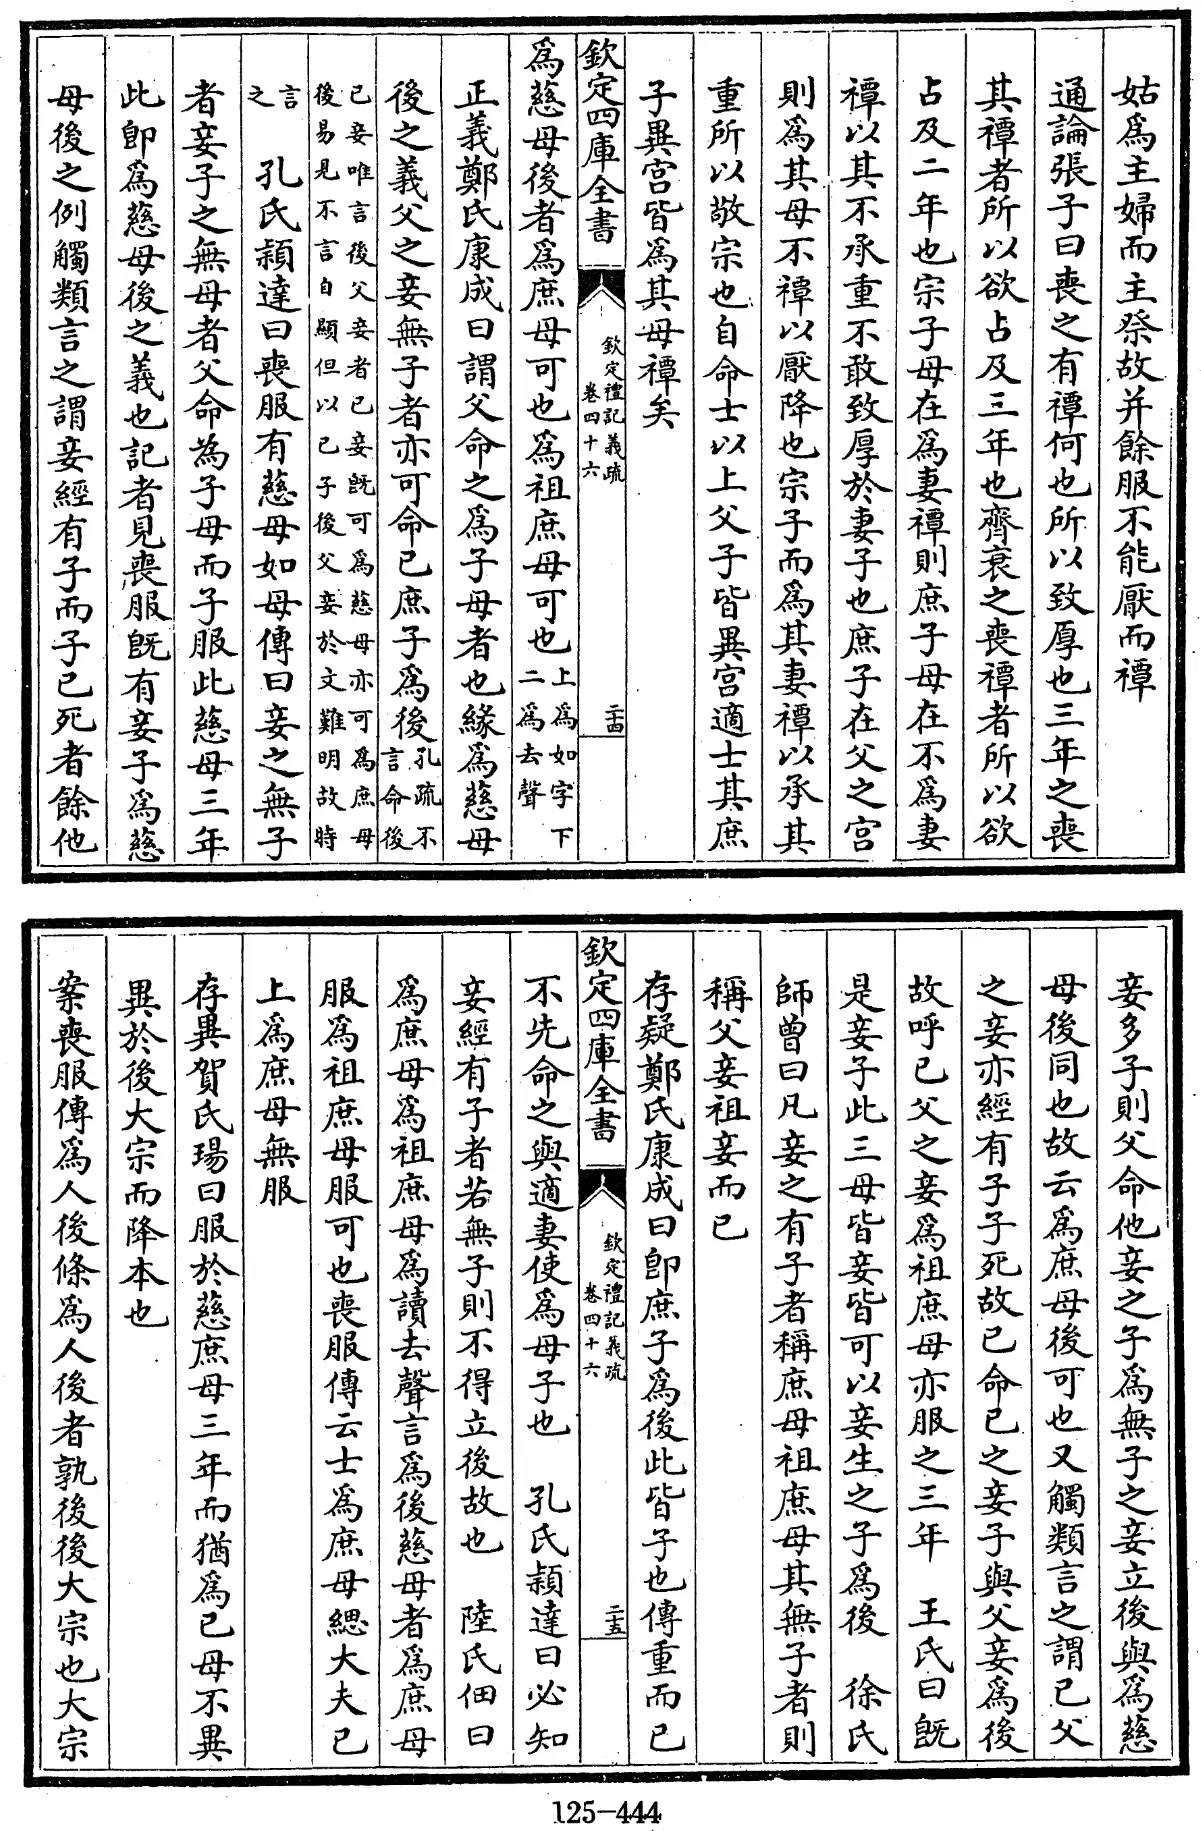 姑為主婦而主祭故并餘服不能厭而禫
通論張子曰喪之有禫何也所以致厚也三年之喪
其禫者所以欲占及三年也齊衰之喪禫者所以欲
占及二年也宗子母在為妻禫則庶子母在不為妻
禫以其不承重不敢致厚於妻子也庶子在父之宮
則為其母不禫以厭降也宗子而為其妻禫以承其
重所以敬宗也自命士以上父子皆異宮適士其庶
子異宮皆為其母禫矣
欽定四庫全書
欽定禮記義疏
卷四十六
二十四
為慈母後者為庶母可也為祖庶母可也上為如字下
二為去聲
正義鄭氏康成曰謂父命之為子母者也緣為慈母
後之義父之妾無子者亦可命己庶子為後孔疏不
言命後
己妾唯言後父妾者己妾既可為慈母亦可為庶母
後易見不言自顯但以己子後父妾於文難明故特
言
之 孔氏穎達曰喪服有慈母如母傳曰妾之無子
者妾子之無母者父命為子母而子服此慈母三年
此即為慈母後之義也記者見喪服既有妾子為慈
母後之例觸類言之謂妾經有子而子已死者餘他
妾多子則父命他妾之子為無子之妾立後與為慈
母後同也故云為庶母後可也又觸類言之謂己父
之妾亦經有子子死故己命己之妾子與父妾為後
故呼己父之妾為祖庶母亦服之三年 王氏曰既
是妾子此三母皆妾皆可以妾生之子為後 徐氏
師曾曰凡妾之有子者稱庶母祖庶母其無子者則
稱父妾祖妾而已
存疑鄭氏康成曰即庶子為後此皆子也傳重而已
欽定四庫全書
欽定禮記義疏
卷四十六
二十五
不先命之與適妻使為母子也 孔氏穎達曰必知
妾經有子者若無子則不得立後故也 陸氏佃曰
為庶母為祖庶母為讀去聲言為後慈母者為庶母
服為祖庶母服可也喪服傳云士為庶母緦大夫已
上為庶母無服
存異賀氏瑒曰服於慈庶母三年而猶為己母不異
異於後大宗而降本也
案喪服傳為人後條為人後者孰後後大宗也大宗
125-444